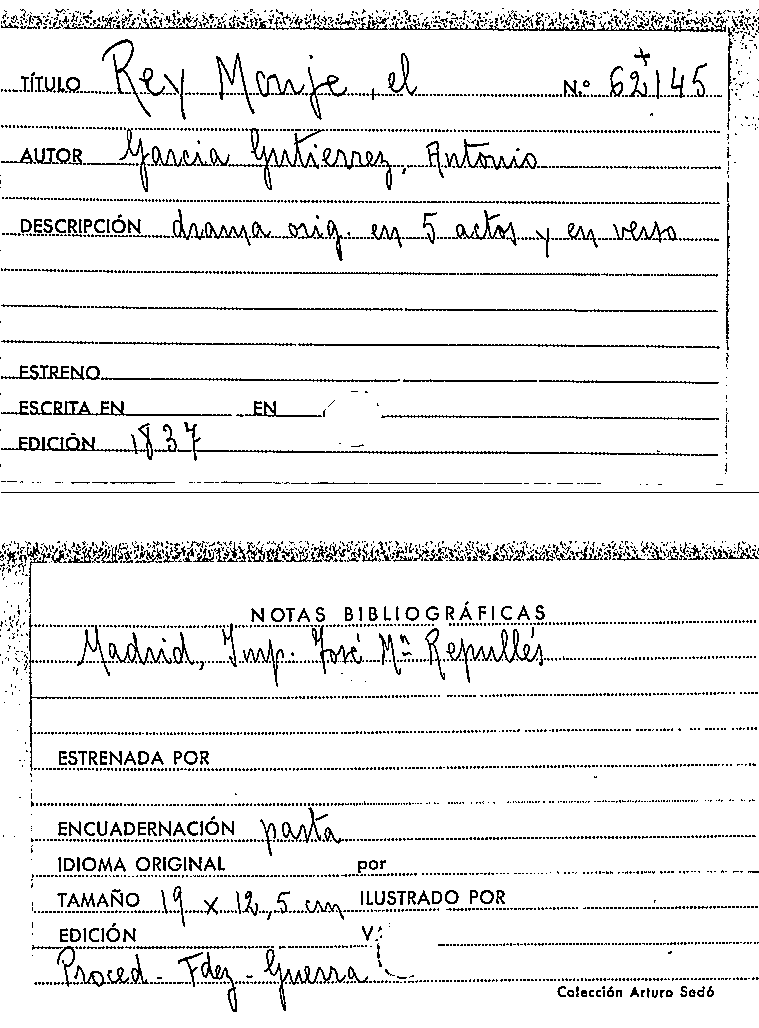 TÍTULO Rey Monje, el N.º 62145
+
AUTOR Garcia Gutierrez, Antonio
DESCRIPCIÓN drama orig. en 5 actos y en verso
ESTRENO
ESCRITA EN EN
EDICIÓN 1837
NOTAS BIBLIOGRÁFICAS
Madrid, Imp. José Mª Repullés
ESTRENADA POR
ENCUADERNACIÓN pasta
IDIOMA ORIGINAL por
TAMAÑO 19 x 12,5 cm ILUSTRADO POR
EDICIÓN V.
Proced - Fdez - Guerra
Colección Arturo Sedó